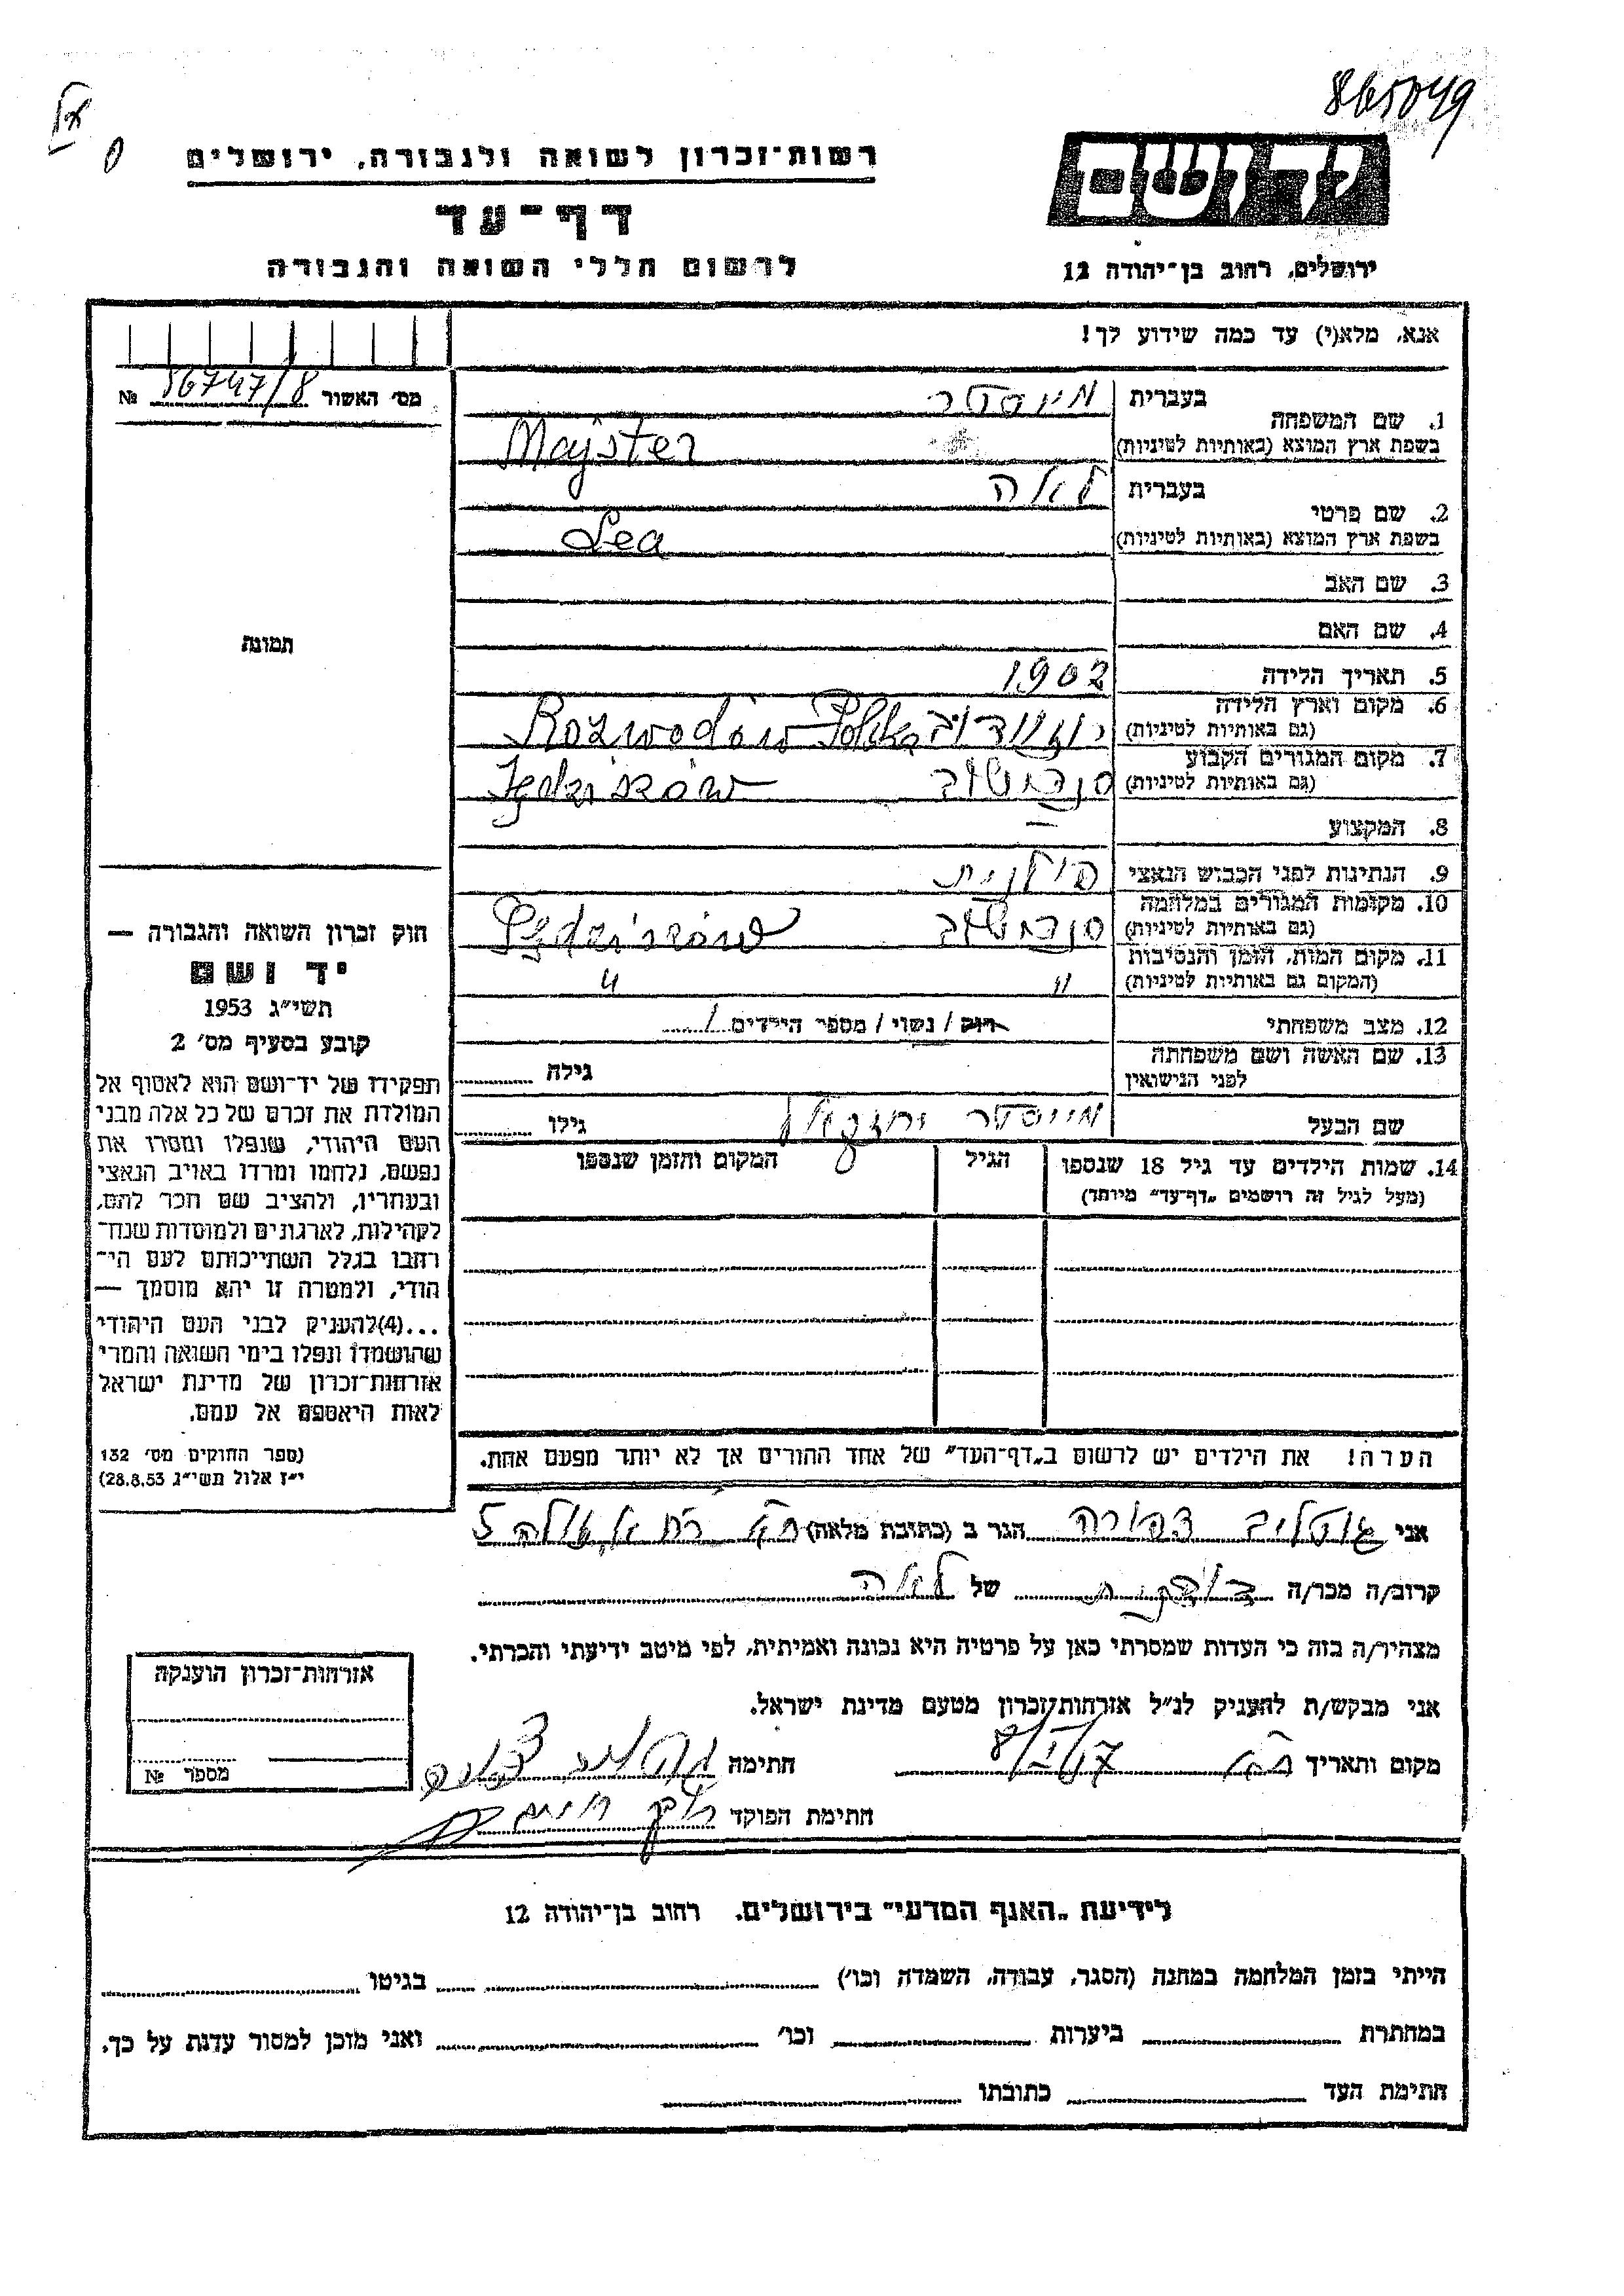 865049
רשות־זכרון לשואה ולגבורה, ירושלים
דף־עד
לרשום חללי השואה והגבורה
ידושם
ירושלים, רחוב בן־יהודה 12
אנא, מלא(י) עד כמה שידוע לך!
מס׳ האשור 56747/8 №
תמונה
1. שם המשפחה
בעברית מייסטר
בשפת ארץ המוצא (באותיות לטיניות) Majster
2. שם פרטי
בעברית לאה
בשפת ארץ המוצא (באותיות לטיניות) Lea
3. שם האב
4. שם האם
5. תאריך הלידה 1902
6. מקום וארץ הלידה
(גם באותיות לטיניות) Rozwodów Polska
7. מקום המגורים הקבוע
(גם באותיות לטיניות)
8. המקצוע —
9. הנתינות לפני הכבוש הנאצי פולנית
10. מקומות המגורים במלחמה
(גם באותיות לטיניות)
11. מקום המות, הזמן והנסיבות
(המקום גם באותיות לטיניות) " "
12. מצב משפחתי רוק / נשוי / מספר הילדים 1
13. שם האשה ושם משפחתה
לפני הנישואין גילה
שם הבעל מייסטר יחזקאל גילו
14. שמות הילדים עד גיל 18 שנספו הגיל המקום והזמן שנספו
(מעל לגיל זה רושמים „דף־עד״ מיוחד)
הערה! את הילדים יש לרשום ב„דף־העד״ של אחד ההורים אך לא יותר מפעם אחת.
חוק זכרון השואה והגבורה —
יד ושם
תשי״ג 1953
קובע בסעיף מס׳ 2
תפקידו של יד־ושם הוא לאסוף אל
המולדת את זכרם של כל אלה מבני
העם היהודי, שנפלו ומסרו את
נפשם, נלחמו ומרדו באויב הנאצי
ובעוזריו, ולהציב שם וזכר להם,
לקהילות, לארגונים ולמוסדות שנח־
רבו בגלל השתייכותם לעם הי־
הודי, ולמטרה זו יהא מוסמך —
...(4)להעניק לבני העם היהודי
שהושמדו ונפלו בימי השואה והמרי
אזרחות־זכרון של מדינת ישראל
לאות היאספם אל עמם.
(ספר החוקים מס׳ 132
י״ז אלול תשי״ג 28.8.53)
אני גוטליב צפורה הגר ב (כתובת מלאה) 5
קרוב/ה מכר/ה של לאה
מצהיר/ה בזה כי העדות שמסרתי כאן על פרטיה היא נכונה ואמיתית, לפי מיטב ידיעתי והכרתי.
אני מבקש/ת להעניק לנ״ל אזרחות־זכרון מטעם מדינת ישראל.
מקום ותאריך חתימה
חתימת הפוקד
אזרחות־זכרון הוענקה
מספר №
לידיעת „האגף המדעי״ בירושלים. רחוב בן־יהודה 12
הייתי בזמן המלחמה במחנה (הסגר, עבודה, השמדה וכו׳) בגיטו
במחתרת ביערות וכו׳ ואני מוכן למסור עדות על כך.
חתימת העד כתובתו